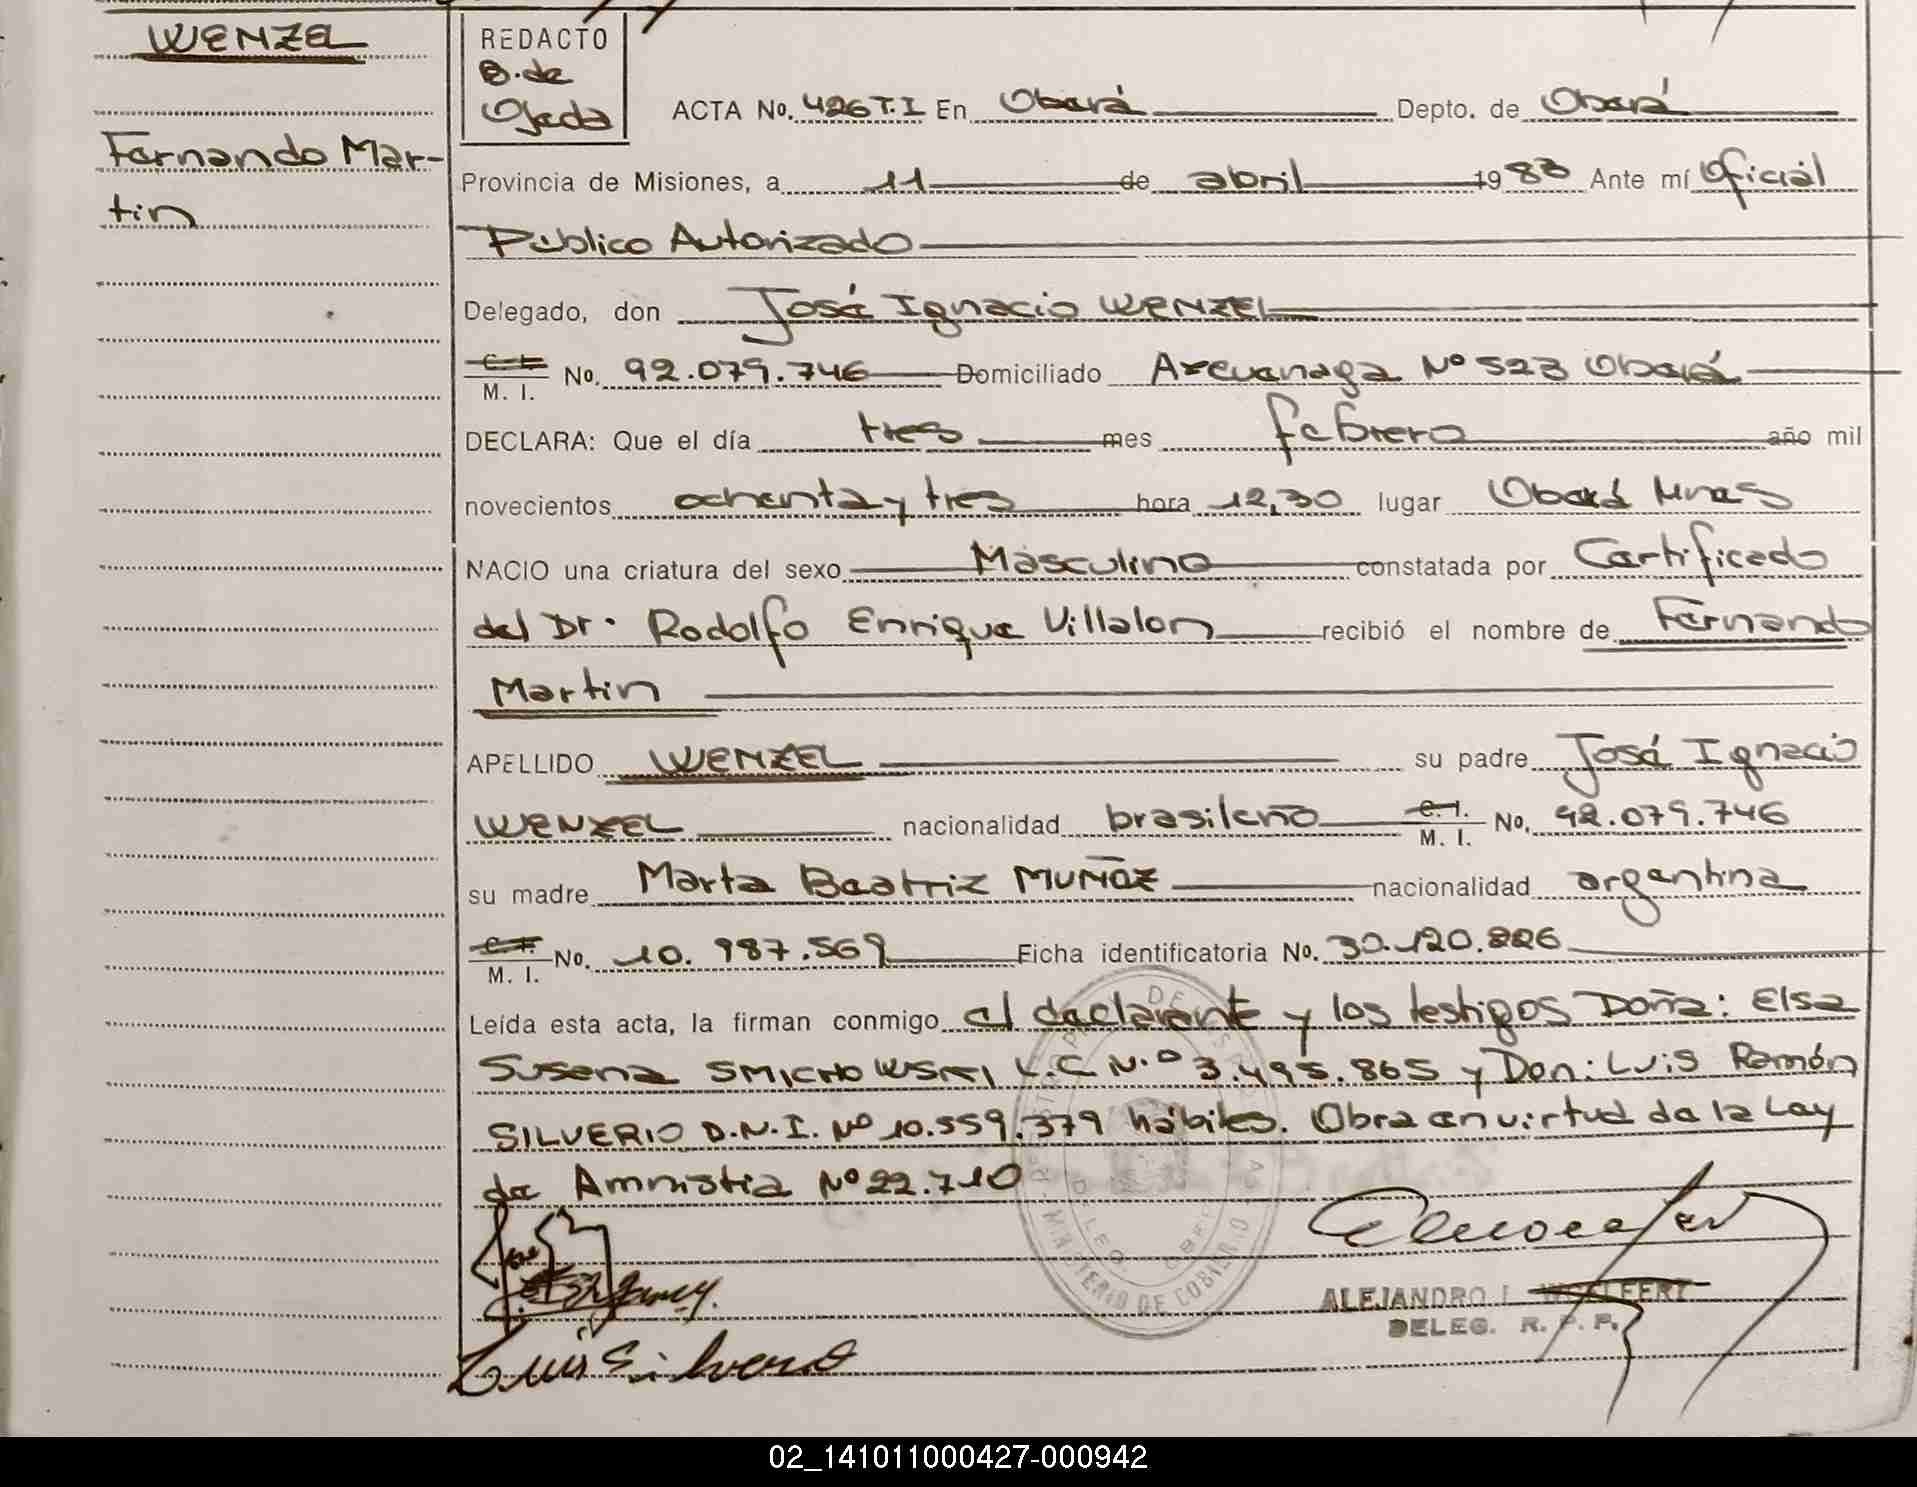 WENZEL
Fernando Mar-
tin
REDACTO
B. de
Ojeda
ACTA No. 426 T.I En Oberá Depto. de Oberá
Provincia de Misiones, a 11 de abril 1983 Ante mí Oficial
Público Autorizado
Delegado, don José Ignacio WENZEL
C. I. M. I. No. 92.079.746 Domiciliado Nº 523 Oberá
DECLARA: Que el día tres mes febrero año mil
novecientos ochenta y tres hora 12,30 lugar Oberá Mnes
NACIO una criatura del sexo Masculino constatada por Certificado
del Dr. Rodolfo Enrique Villalon recibió el nombre de Fernando
Martin
APELLIDO WENZEL su padre José Ignacio
WENZEL nacionalidad brasileño C. I. M. I. No. 92.079.746
su madre Marta Beatriz MUÑOZ nacionalidad argentina
C. I. M. I. No. 10.987.569 Ficha identificatoria No. 30.120.826
Leída esta acta, la firman conmigo el declarante y los testigos Doña: Elsa
Susana SMICHOWSKI L.C N.º 3.495.865 y Don: Luis Ramón
SILVERIO D.N.I. Nº 10.559.379 hábiles. Obra en virtud de la Ley
de Amnistia Nº 22.710
Luis Silverio
ALEJANDRO I. WOELFERT
DELEG. R. P. P.
MINISTERIO DE GOBIERNO
02_141011000427-000942